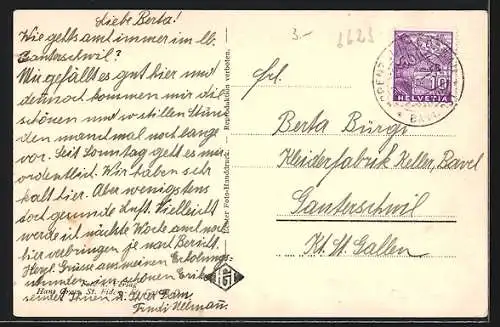 Liebe Berta!
Wie gehts amt immer im lb.
Ganterschwil?
Mir gefällt es gut hier und
dennoch kommen mir die
schönen und so stillen Stun
den manchmal noch lange
vor. Seit Sonntag geht es mir
ordentlich. Wir haben sehr
kalt hier. Aber wenigstens
doch gesunde Luft. Vielleicht
werde ich nächste Woche
hier verbringen je nach Bericht.
Herzl. Grüsse aus meinen Erholungs-
stunden im schönen
sendet Ihnen
Trudi
Hans Gross, St.
Echter Foto-Handdruck. Reproduktion verboten.
3.-
HELVETIA
10
Frl.
Berta Bürgi
Kleiderfabrik Keller, Bavel
Ganterschwil
Kt. St. Gallen